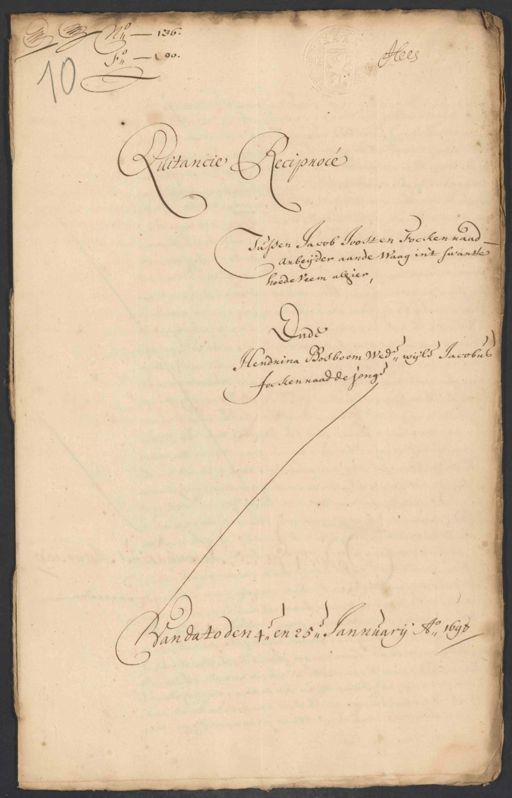 No — 136.
Fo —
10
Quitancie Reciprocé
Tussen Jacob Joosten Fockenraad
Arbeijder aande Waag in't swarte
hoede veem alhier,
Ende
Hendrina Bosboom Wed.e wijls Jacobus
fockenraad de jonge
Van dato den 4.e en 25.e Jannuarij Ao